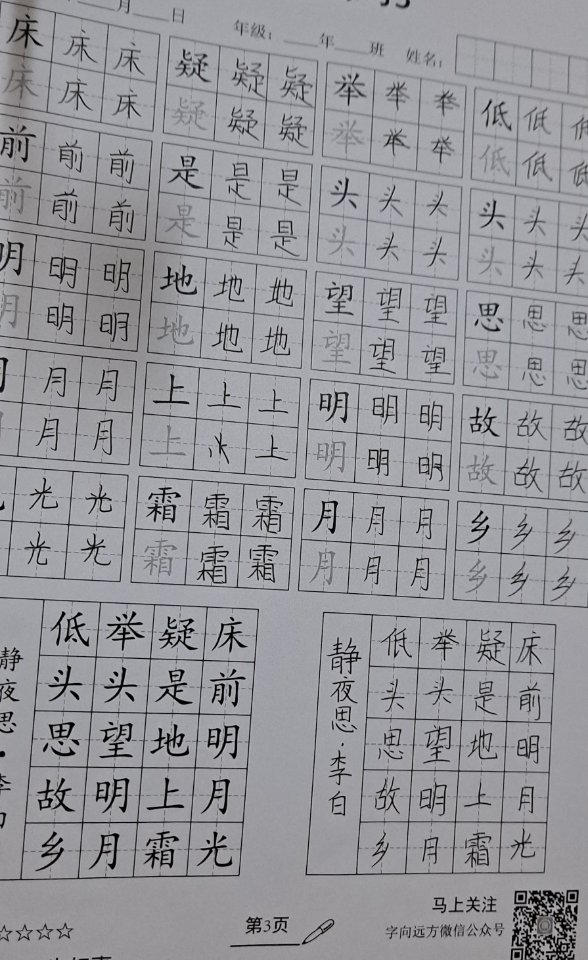 月 日
年级： 年 班 姓名：
床 床 床 疑 疑 疑 举 举 举 低 低 低
床 床 床 疑 疑 疑 举 举 举 低 低 低
前 前 前 是 是 是 头 头 头 头 头 头
前 前 前 是 是 是 头 头 头 头 头 头
明 明 明 地 地 地 望 望 望 思 思 思
明 明 明 地 地 地 望 望 望 思 思 思
月 月 月 上 上 上 明 明 明 故 故 故
月 月 上 上 明 明 明 故 故 故
光 光 霜 霜 霜 月 月 月 乡 乡 乡
光 光 霜 霜 霜 月 月 月 乡 乡 乡
床前明月光
疑是地上霜
举头望明月
低头思故乡
静夜思·李白
床前明月光
疑是地上霜
举头望明月
低头思故乡
静夜思·李白
第3页
马上关注
字向远方微信公众号